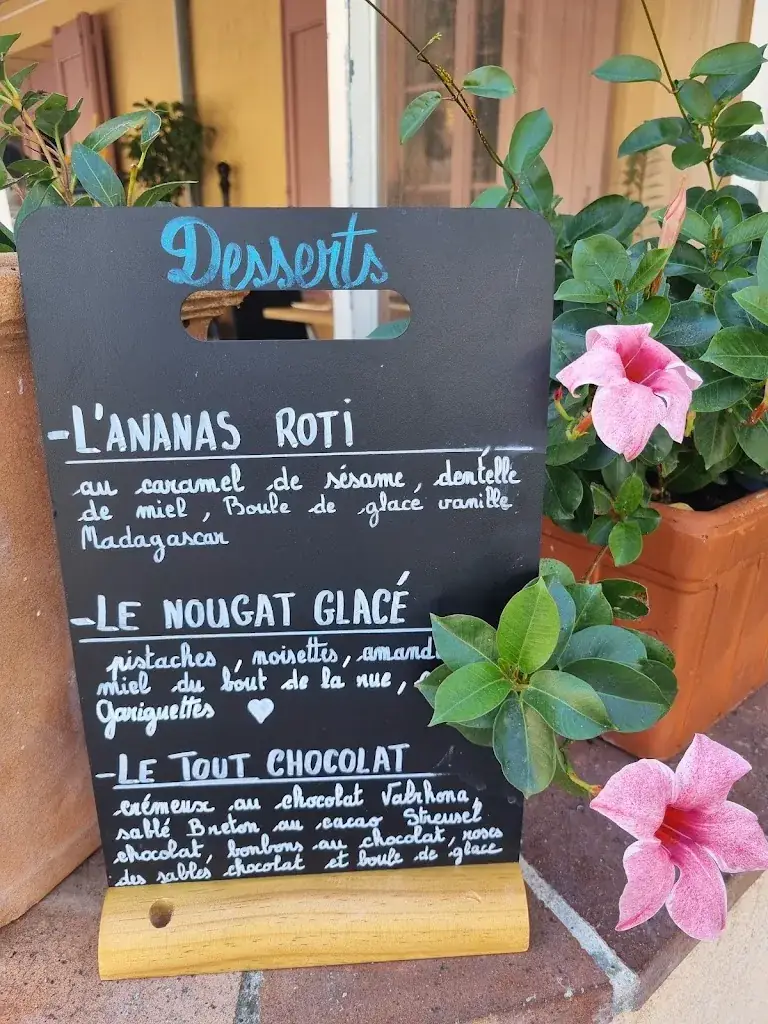 Desserts
-L'ANANAS ROTI
au caramel de sésame, dentelle
de miel, Boule de glace vanille
Madagascar
-LE NOUGAT GLACÉ
pistaches, noisettes, amand
miel du bout de la rue,
Gariguettes
-LE TOUT CHOCOLAT
crémeux au chocolat Valrhona,
sablé Breton au cacao Streusel
chocolat, bonbons au chocolat, roses
des sables chocolat et boule de glace